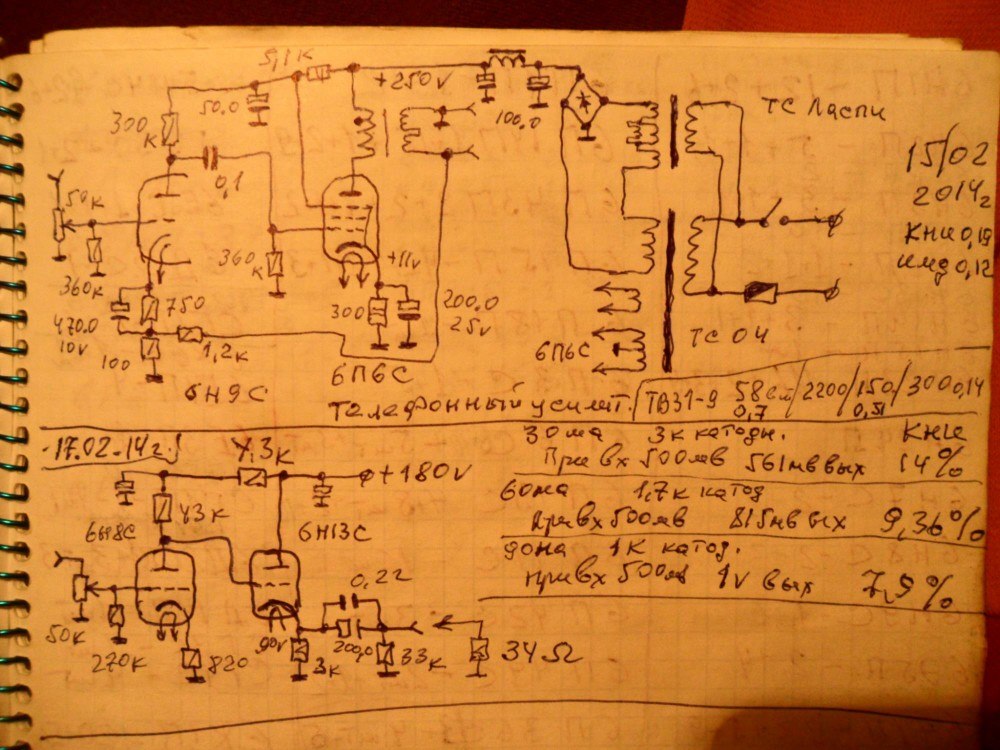 5,1к
+250v
50.0
300к
0,1
100.0
ТС Ласпи
15/02
2014г
КНИ 0,19
ИМД 0,12
50к
360к
360к
+11v
750
300
200.0
25v
470.0
10v
100
1,2к
6Н9С
6П6С
6П6С
ТС 04
Телефонный усилит.
ТВ31-9 58см/2200/150/300 0,14
0,7 0,51
17.02.14г.
4,3к
+180v
43к
6Н8С
6Н13С
50к
270к
820
90v
3к
0,22
200,0
33к
34Ω
30ма 3к катодн. КНИ
При вх 500мв 561мв вых 14%
60ма 1,7к катод
При вх 500мв 815мв вых 9,36%
1к катод.
При вх 500мв 1v вых 7,9%